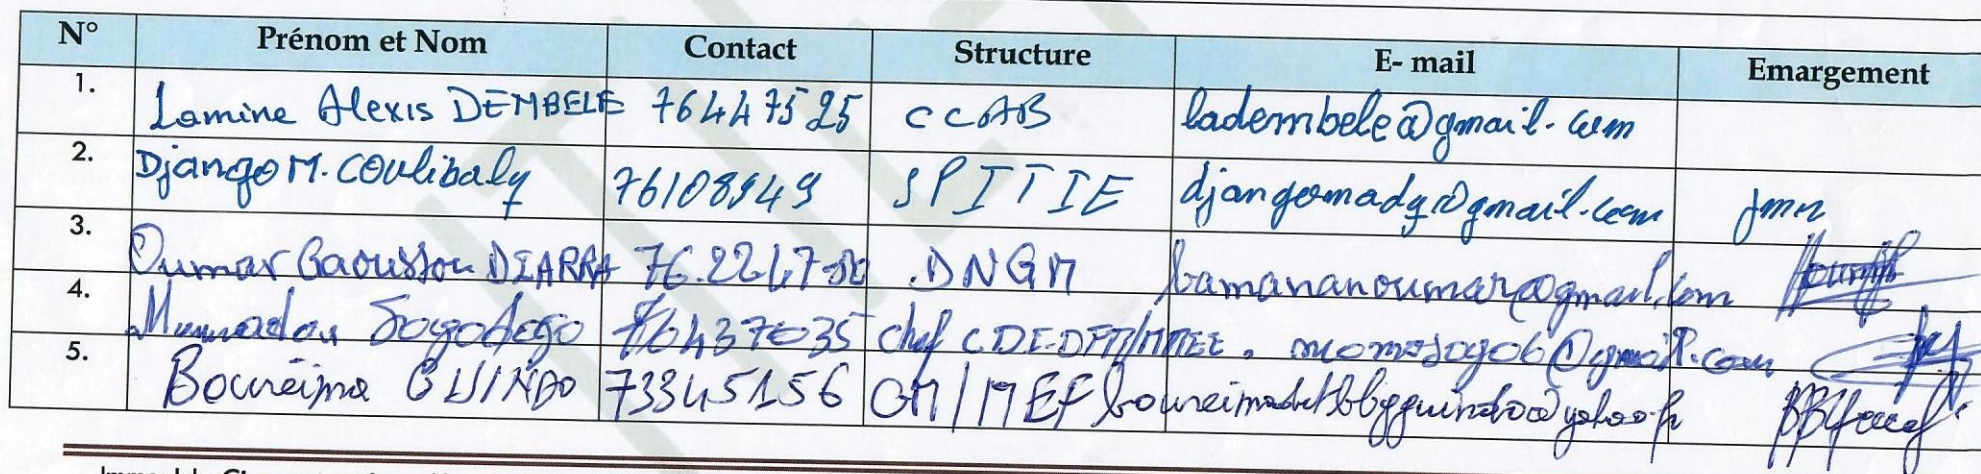 N° Prénom et Nom Contact Structure E- mail Emargement
1. Lamine Alexis DEMBELE 76447525 CCAB lademmbele@gmail.com
2. Django M. COulibaly 76108949 SPITIE djangomady@gmail.com
3. Oumar Baoussou DIARRA 76.22.47-80 DNGM bamananoumar@gmail.com
4. Mamadou Sogodogo 76437035 chef momosogo6@gmail.com
5. Boureima GUINDO 73345156 GM/MEF